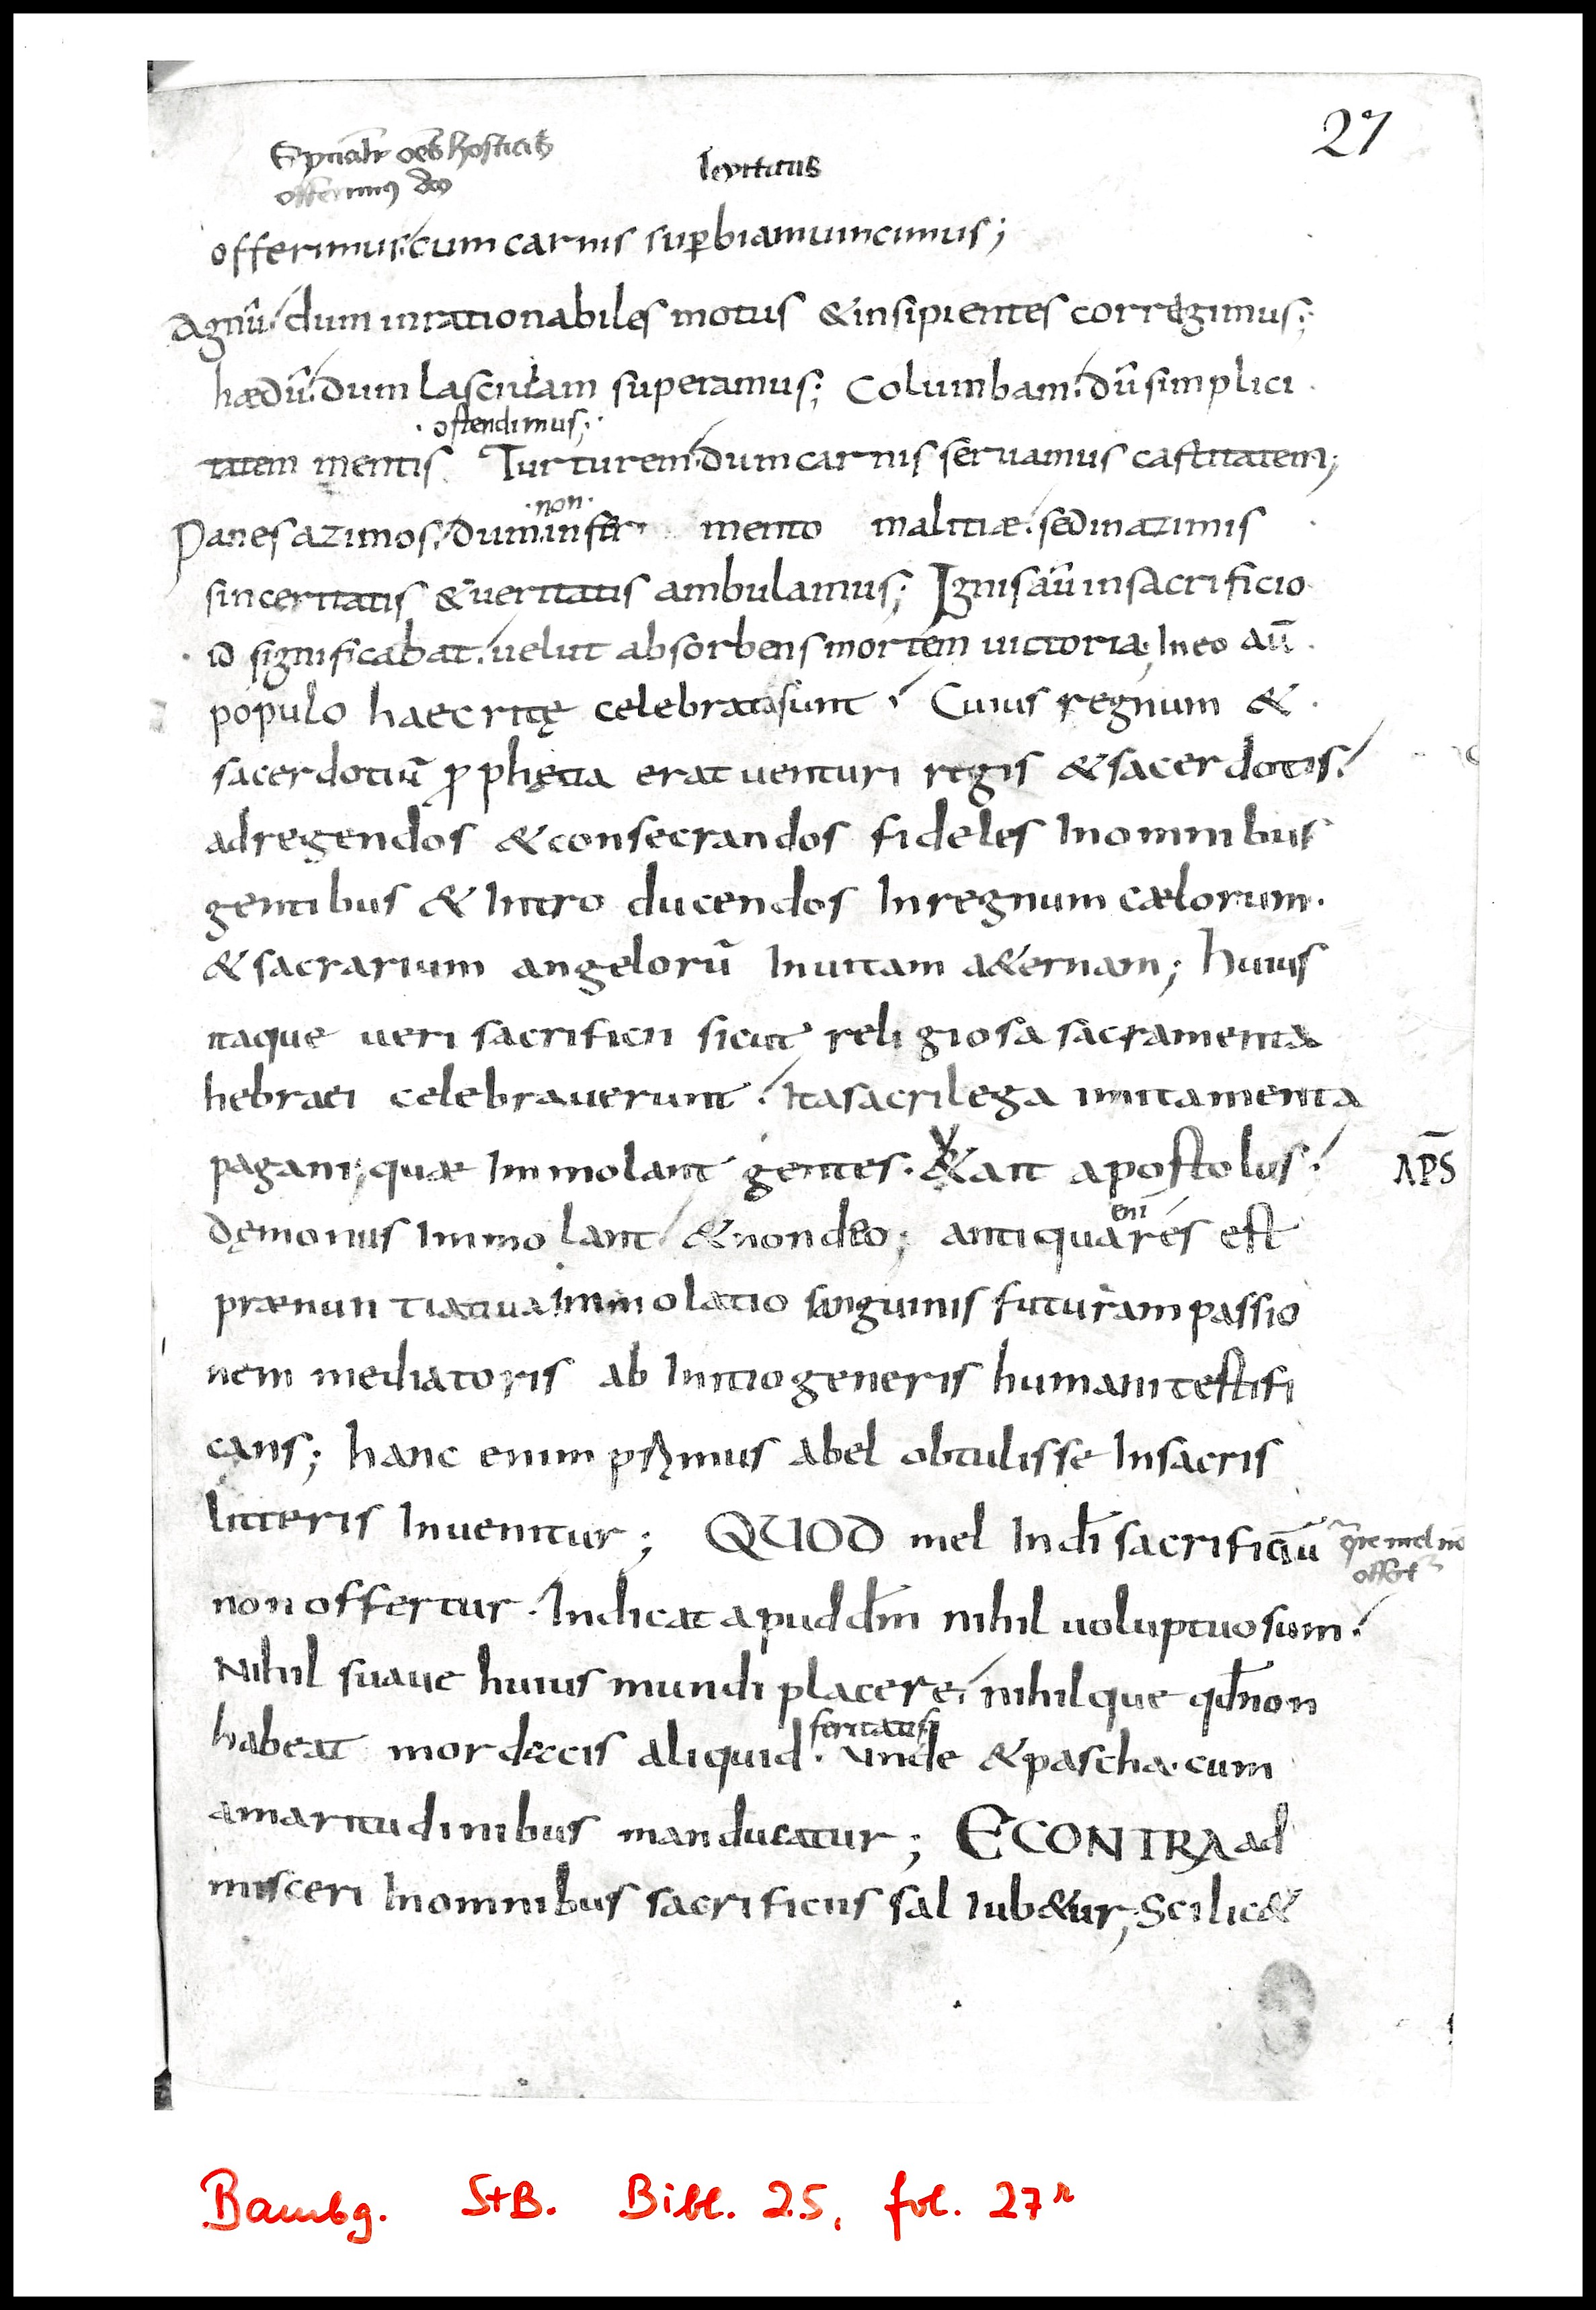 27
Sp̄ualit̄ oēs hostias
offerimus dō
leuiticus
offerimus. cum carnis sup̱biam uincimus;
Agnū. dum inrationabiles motus & insipientes corregimus;
hædū. dum lasciuiam superamus; Columbam. dū simplici
ostendimus;
tatem mentis Turturem. dum carnis seruamus castitatem;
·non·
Panes azimos. dum infer mento malitiæ. sed in azimis
sinceritatis & ueritatis ambulamus; Ignis aū in sacrificio
id significabat. uelut absorbens mortem uictoria; In eo aū
populo haec ritę celebrata sunt. Cuius regnum &
sacerdotiū ꝓphętia erat uenturi regis & sacerdotis.
ad regendos & consecrandos fideles In omnibus
gentibus & Intro ducendos In regnum cælorum.
& sacrarium angelorū In uitam a&ernam; huius
itaque ueri sacrificii sicut religiosa sacramenta
hebraei celebrauerunt. Ita sacrilega imitamenta
pagani; quae Immolant gentes. & ait apostolus.
APS̄
dęmoniis Immolant & non deo; antiqua res est
eni
prænuntiatiua immolatio sanguinis futuram passio
nem mediatoris ab Initio generis humani testifi
cans; hanc enim primus abel obtulisse In sacris
litteris Inuenitur; QUOD mel In dī sacrificiū
q̄re mel nō
offert̄
non offertur. Indicat apud dm̄ nihil uoluptuosum.
Nihil suaue huius mundi placere. nihilque qd̄ non
feritatis
habeat mordacis aliquid. unde & pascha. cum
amaritudinibus manducatur; ECONTRA ad
misceri In omnibus sacrificiis sal Iub&ur; Scilic&
Bambg. StB. Bibl. 25, fol. 27r